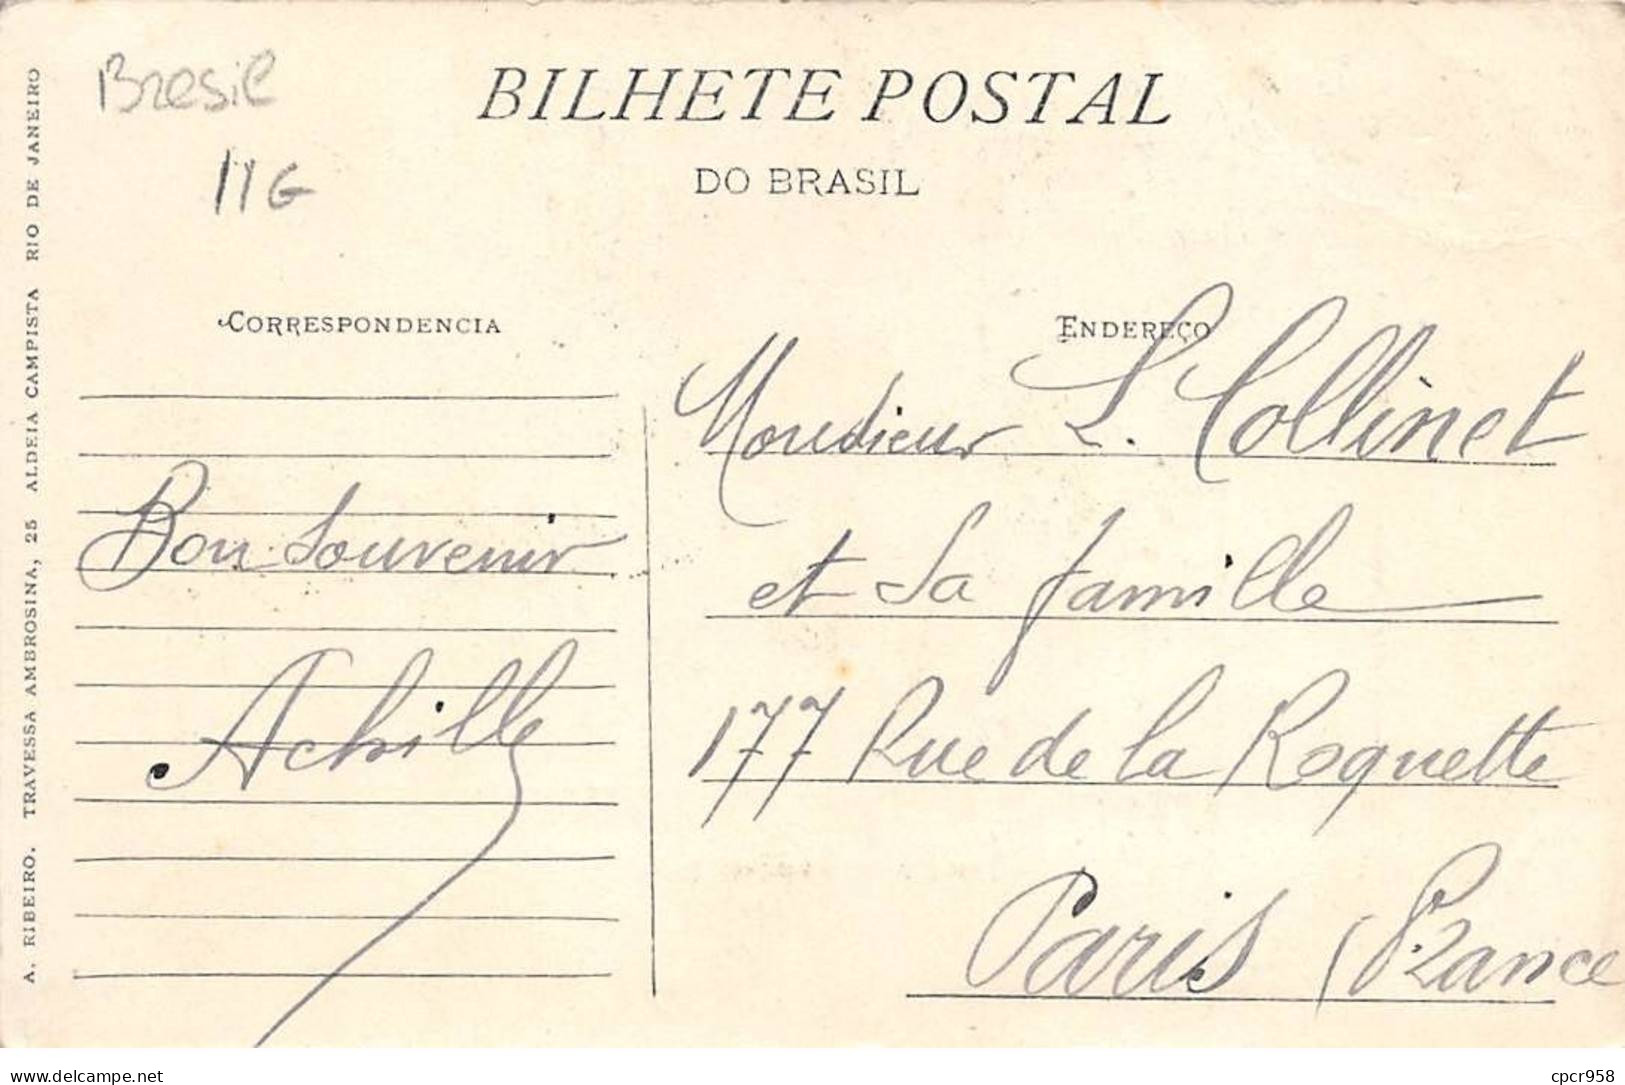 Bresil
11G
BILHETE POSTAL
DO BRASIL
A. RIBEIRO. TRAVESSA AMBROSINA, 25 ALDEIA CAMPISTA RIO DE JANEIRO
CORRESPONDENCIA
Bon Souvenir
Achille
ENDEREÇO
Monsieur L. Collinet
et Sa famille
177 Rue de la Roquette
Paris (France
delcampe.net
cpcr958